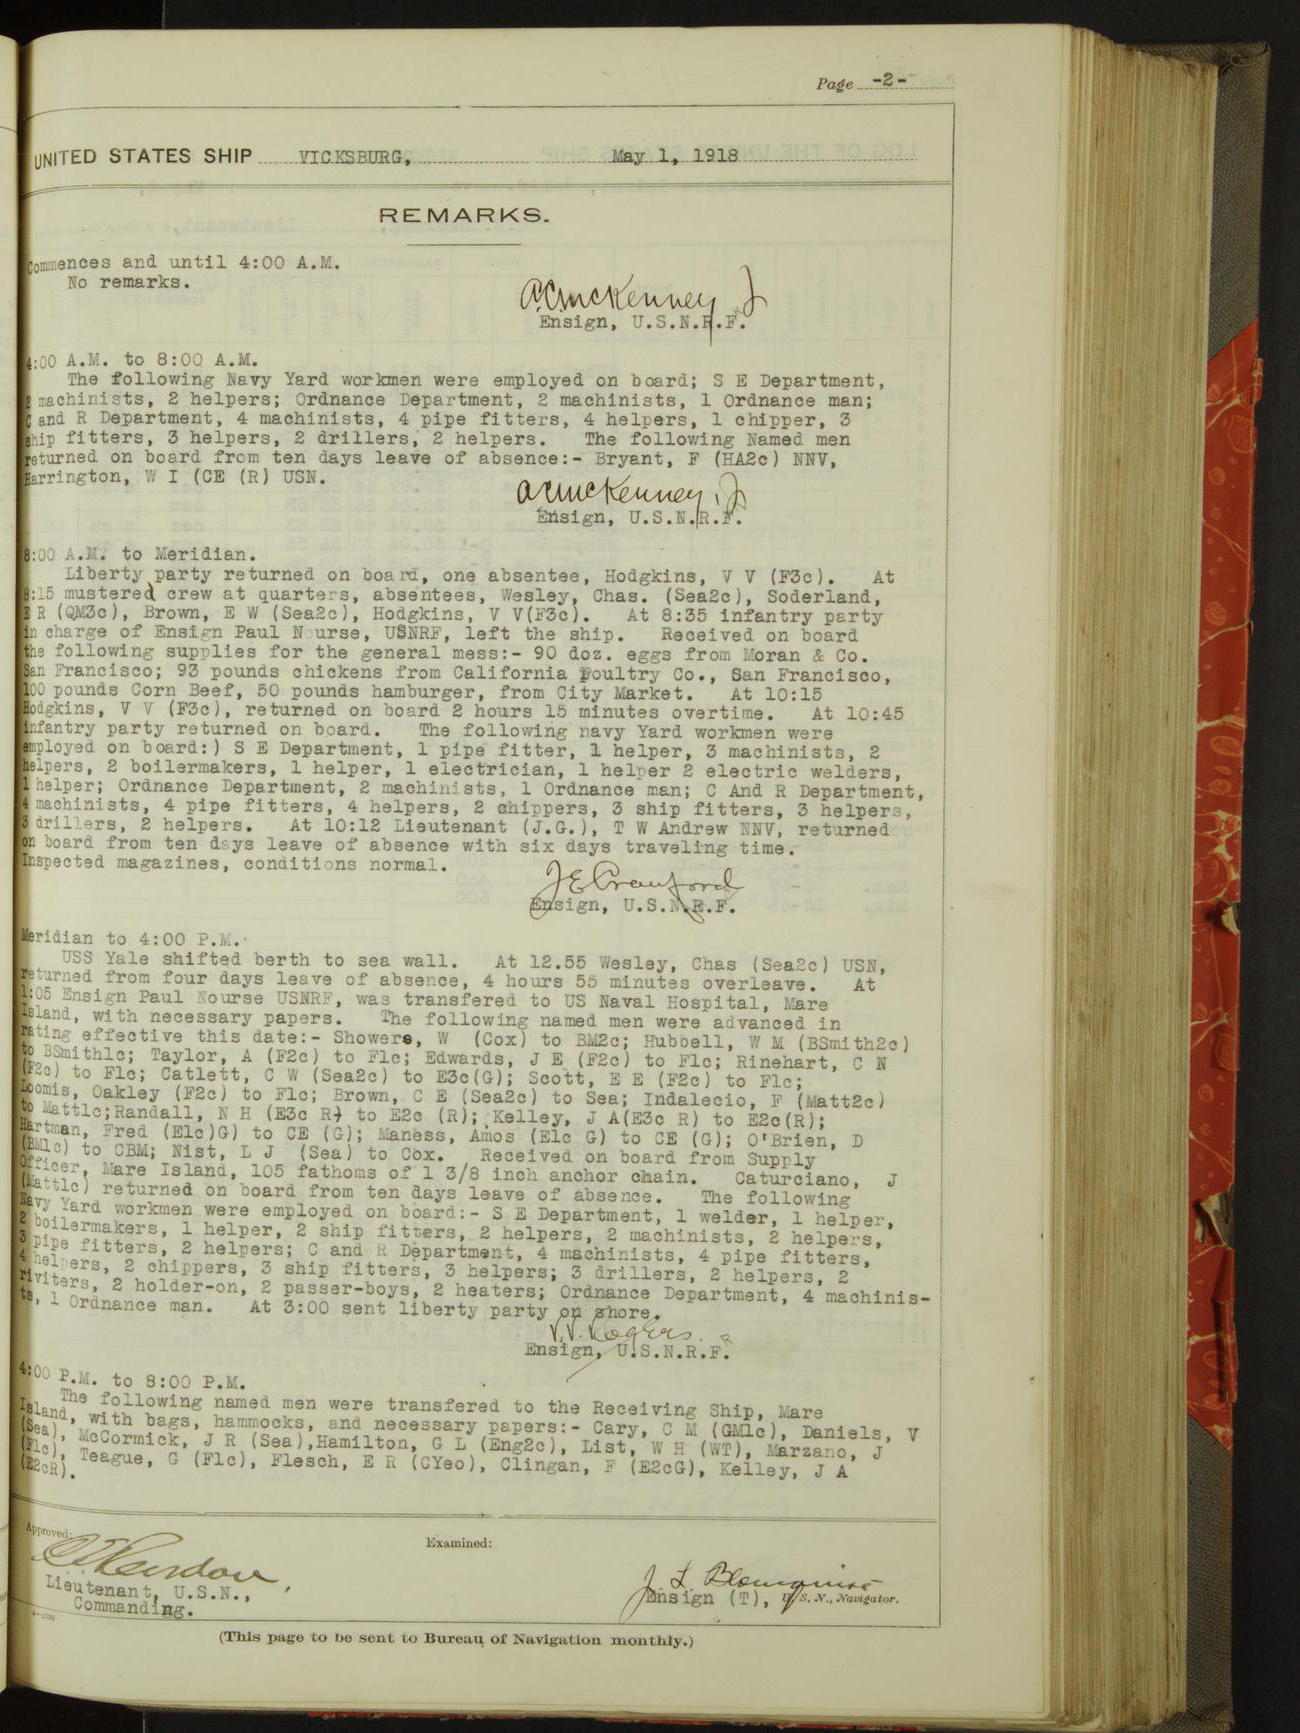 Page -2-
UNITED STATES SHIP VICKSBURG, May 1, 1918
REMARKS.
Commences and until 4:00 A.M.
No remarks.
A.C.McKenney J
Ensign, U.S.N.R.F.
4:00 A.M. to 8:00 A.M.
The following Navy Yard workmen were employed on board; S E Department,
2 machinists, 2 helpers; Ordnance Department, 2 machinists, 1 Ordnance man;
C and R Department, 4 machinists, 4 pipe fitters, 4 helpers, 1 chipper, 3
ship fitters, 3 helpers, 2 drillers, 2 helpers. The following Named men
returned on board from ten days leave of absence:- Bryant, F (HA2c) NNV,
Harrington, W I (CE (R) USN.
A.C.McKenney, J
Ensign, U.S.N.R.F.
8:00 A.M. to Meridian.
Liberty party returned on board, one absentee, Hodgkins, V V (F3c). At
8:15 mustered crew at quarters, absentees, Wesley, Chas. (Sea2c), Soderland,
E R (QM3c), Brown, E W (Sea2c), Hodgkins, V V(F3c). At 8:35 infantry party
in charge of Ensign Paul Nourse, USNRF, left the ship. Received on board
the following supplies for the general mess:- 90 doz. eggs from Moran & Co.
San Francisco; 93 pounds chickens from California Poultry Co., San Francisco,
100 pounds Corn Beef, 50 pounds hamburger, from City Market. At 10:15
Hodgkins, V V (F3c), returned on board 2 hours 15 minutes overtime. At 10:45
infantry party returned on board. The following navy Yard workmen were
employed on board:) S E Department, 1 pipe fitter, 1 helper, 3 machinists, 2
helpers, 2 boilermakers, 1 helper, 1 electrician, 1 helper 2 electric welders,
1 helper; Ordnance Department, 2 machinists, 1 Ordnance man; C And R Department,
4 machinists, 4 pipe fitters, 4 helpers, 2 chippers, 3 ship fitters, 3 helpers,
3 drillers, 2 helpers. At 10:12 Lieutenant (J.G.), T W Andrew NNV, returned
on board from ten days leave of absence with six days traveling time.
Inspected magazines, conditions normal.
J E Cranford
Ensign, U.S.N.R.F.
Meridian to 4:00 P.M.
USS Yale shifted berth to sea wall. At 12.55 Wesley, Chas (Sea2c) USN,
returned from four days leave of absence, 4 hours 55 minutes overleave. At
1:05 Ensign Paul Nourse USNRF, was transfered to US Naval Hospital, Mare
Island, with necessary papers. The following named men were advanced in
rating effective this date:- Showers, W (Cox) to BM2c; Hubbell, W M (BSmith2c)
to BSmith1c; Taylor, A (F2c) to F1c; Edwards, J E (F2c) to F1c; Rinehart, C N
(F2c) to F1c; Catlett, C W (Sea2c) to E3c(G); Scott, E E (F2c) to F1c;
Loomis, Oakley (F2c) to F1c; Brown, C E (Sea2c) to Sea; Indalecio, F (Matt2c)
to Matt1c;Randall, N H (E3c R) to E2c (R); Kelley, J A(E3c R) to E2c(R);
Hartman, Fred (E1c)G) to CE (G); Maness, Amos (E1c G) to CE (G); O'Brien, D
(BM1c) to CBM; Nist, L J (Sea) to Cox. Received on board from Supply
Officer, Mare Island, 105 fathoms of 1 3/8 inch anchor chain. Caturciano, J
(Matt1c) returned on board from ten days leave of absence. The following
Navy Yard workmen were employed on board:- S E Department, 1 welder, 1 helper,
2 boilermakers, 1 helper, 2 ship fitters, 2 helpers, 2 machinists, 2 helpers,
3 pipe fitters, 2 helpers; C and R Department, 4 machinists, 4 pipe fitters,
4 helpers, 2 chippers, 3 ship fitters, 3 helpers; 3 drillers, 2 helpers, 2
riviters, 2 holder-on, 2 passer-boys, 2 heaters; Ordnance Department, 4 machinis-
ts, 1 Ordnance man. At 3:00 sent liberty party on shore.
V.V. Rogers.
Ensign, U.S.N.R.F.
4:00 P.M. to 8:00 P.M.
The following named men were transfered to the Receiving Ship, Mare
Island, with bags, hammocks, and necessary papers:- Cary, C M (GM1c), Daniels, V
(Sea), McCormick, J R (Sea),Hamilton, G L (Eng2c), List, W H (WT), Marzano, J
(F1c), Teague, G (F1c), Flesch, E R (CYeo), Clingan, F (E2cG), Kelley, J A
(E2cR).
Approved:
Examined:
Lieutenant, U.S.N.,
Commanding.
J. L. Blomquist
Ensign (T), U. S. N., Navigator.
(This page to be sent to Bureau of Navigation monthly.)